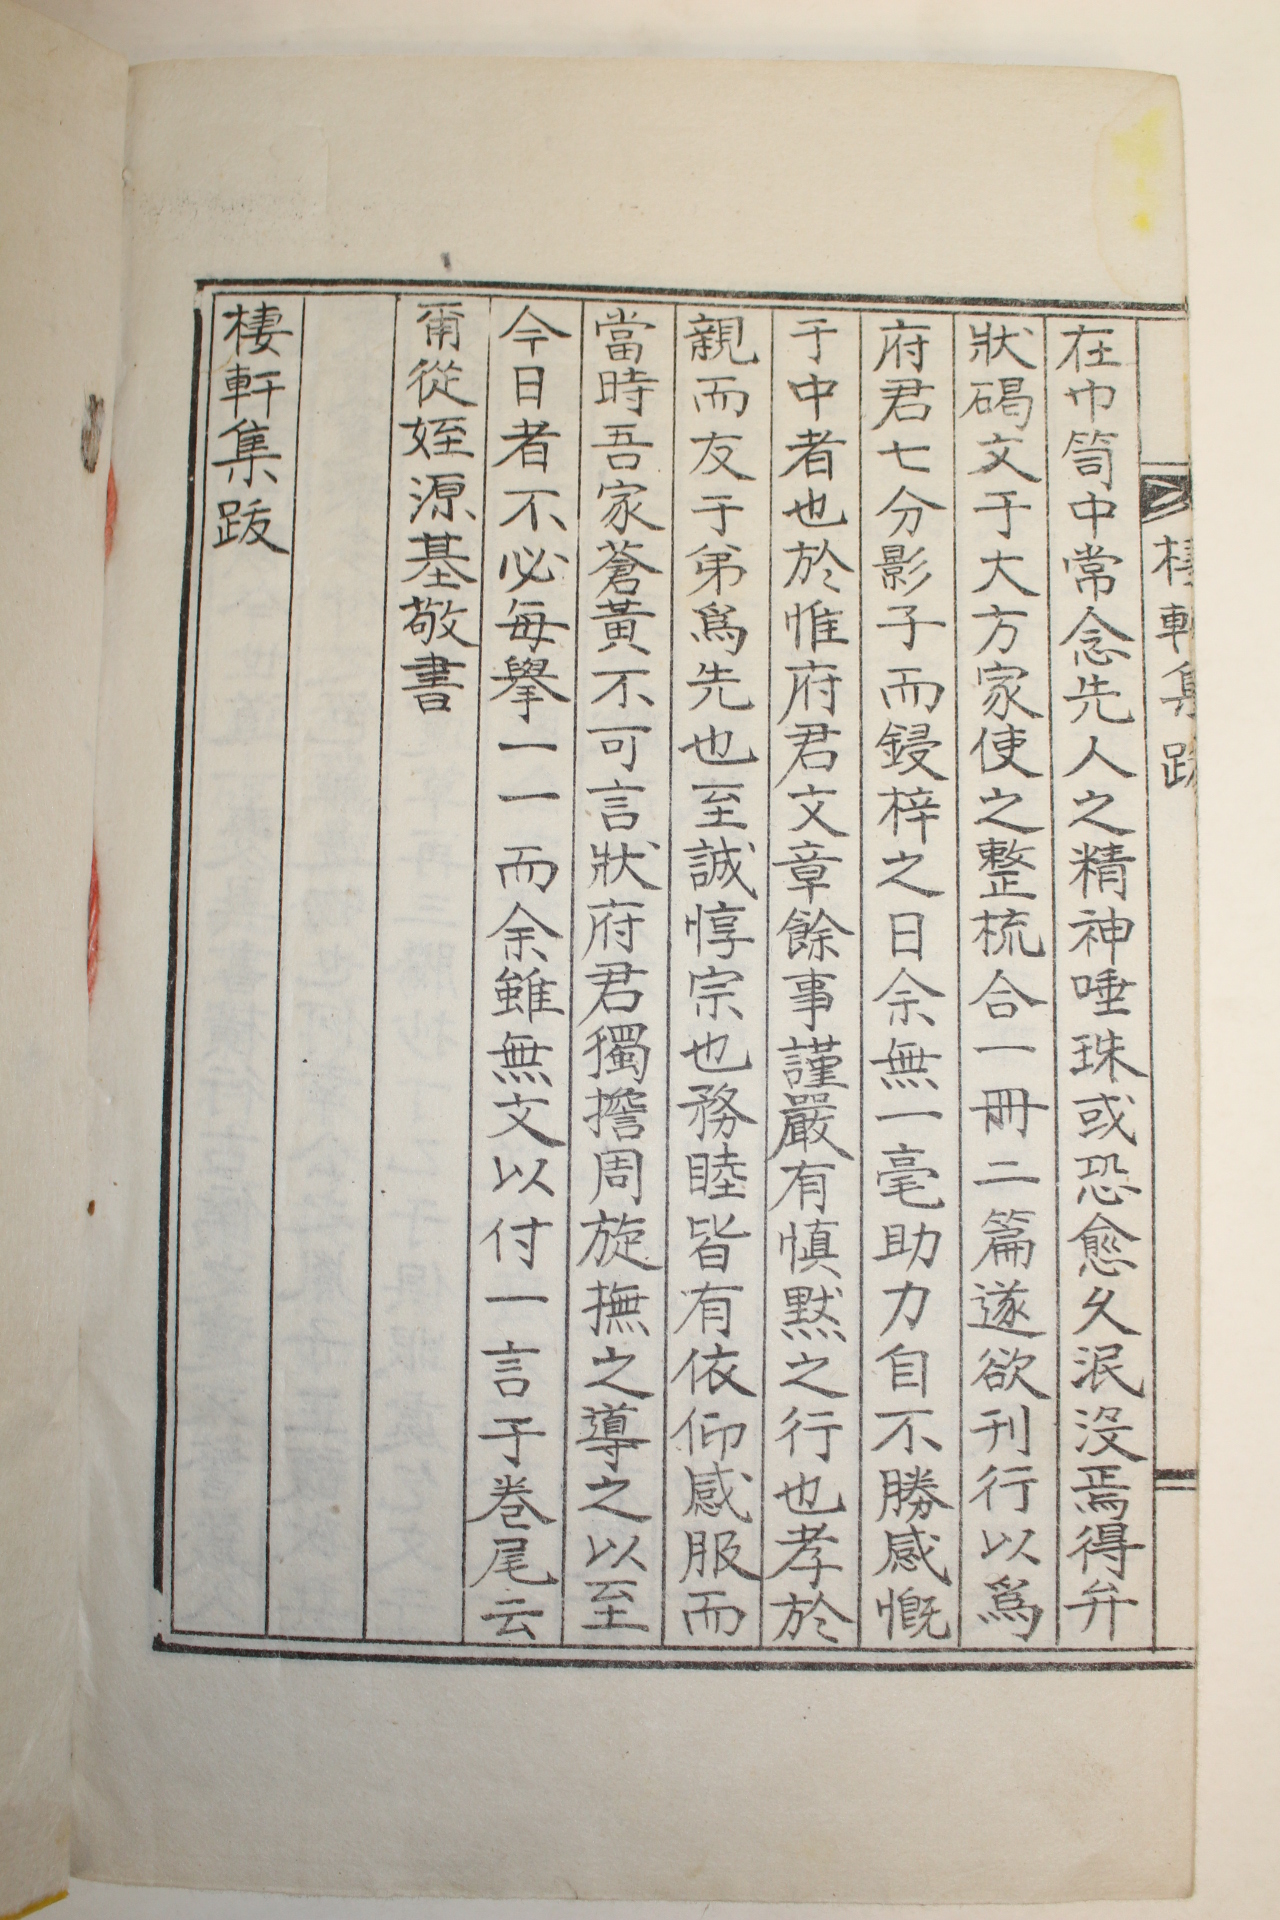 棲軒集跋
在巾笥中常念先人之精神唾珠或恐愈久泯沒焉得弁
狀碣文于大方家使之整梳合一冊二篇遂欲刊行以爲
府君七分影子而鋟梓之日余無一毫助力自不勝感慨
于中者也於惟府君文章餘事謹嚴有愼默之行也孝於
親而友于弟爲先也至誠惇宗也務睦皆有依仰感服而
當時吾家蒼黃不可言狀府君獨擔周旋撫之導之以至
今日者不必每擧一一而余雖無文以付一言于卷尾云
甭從姪源基敬書
棲軒集跋